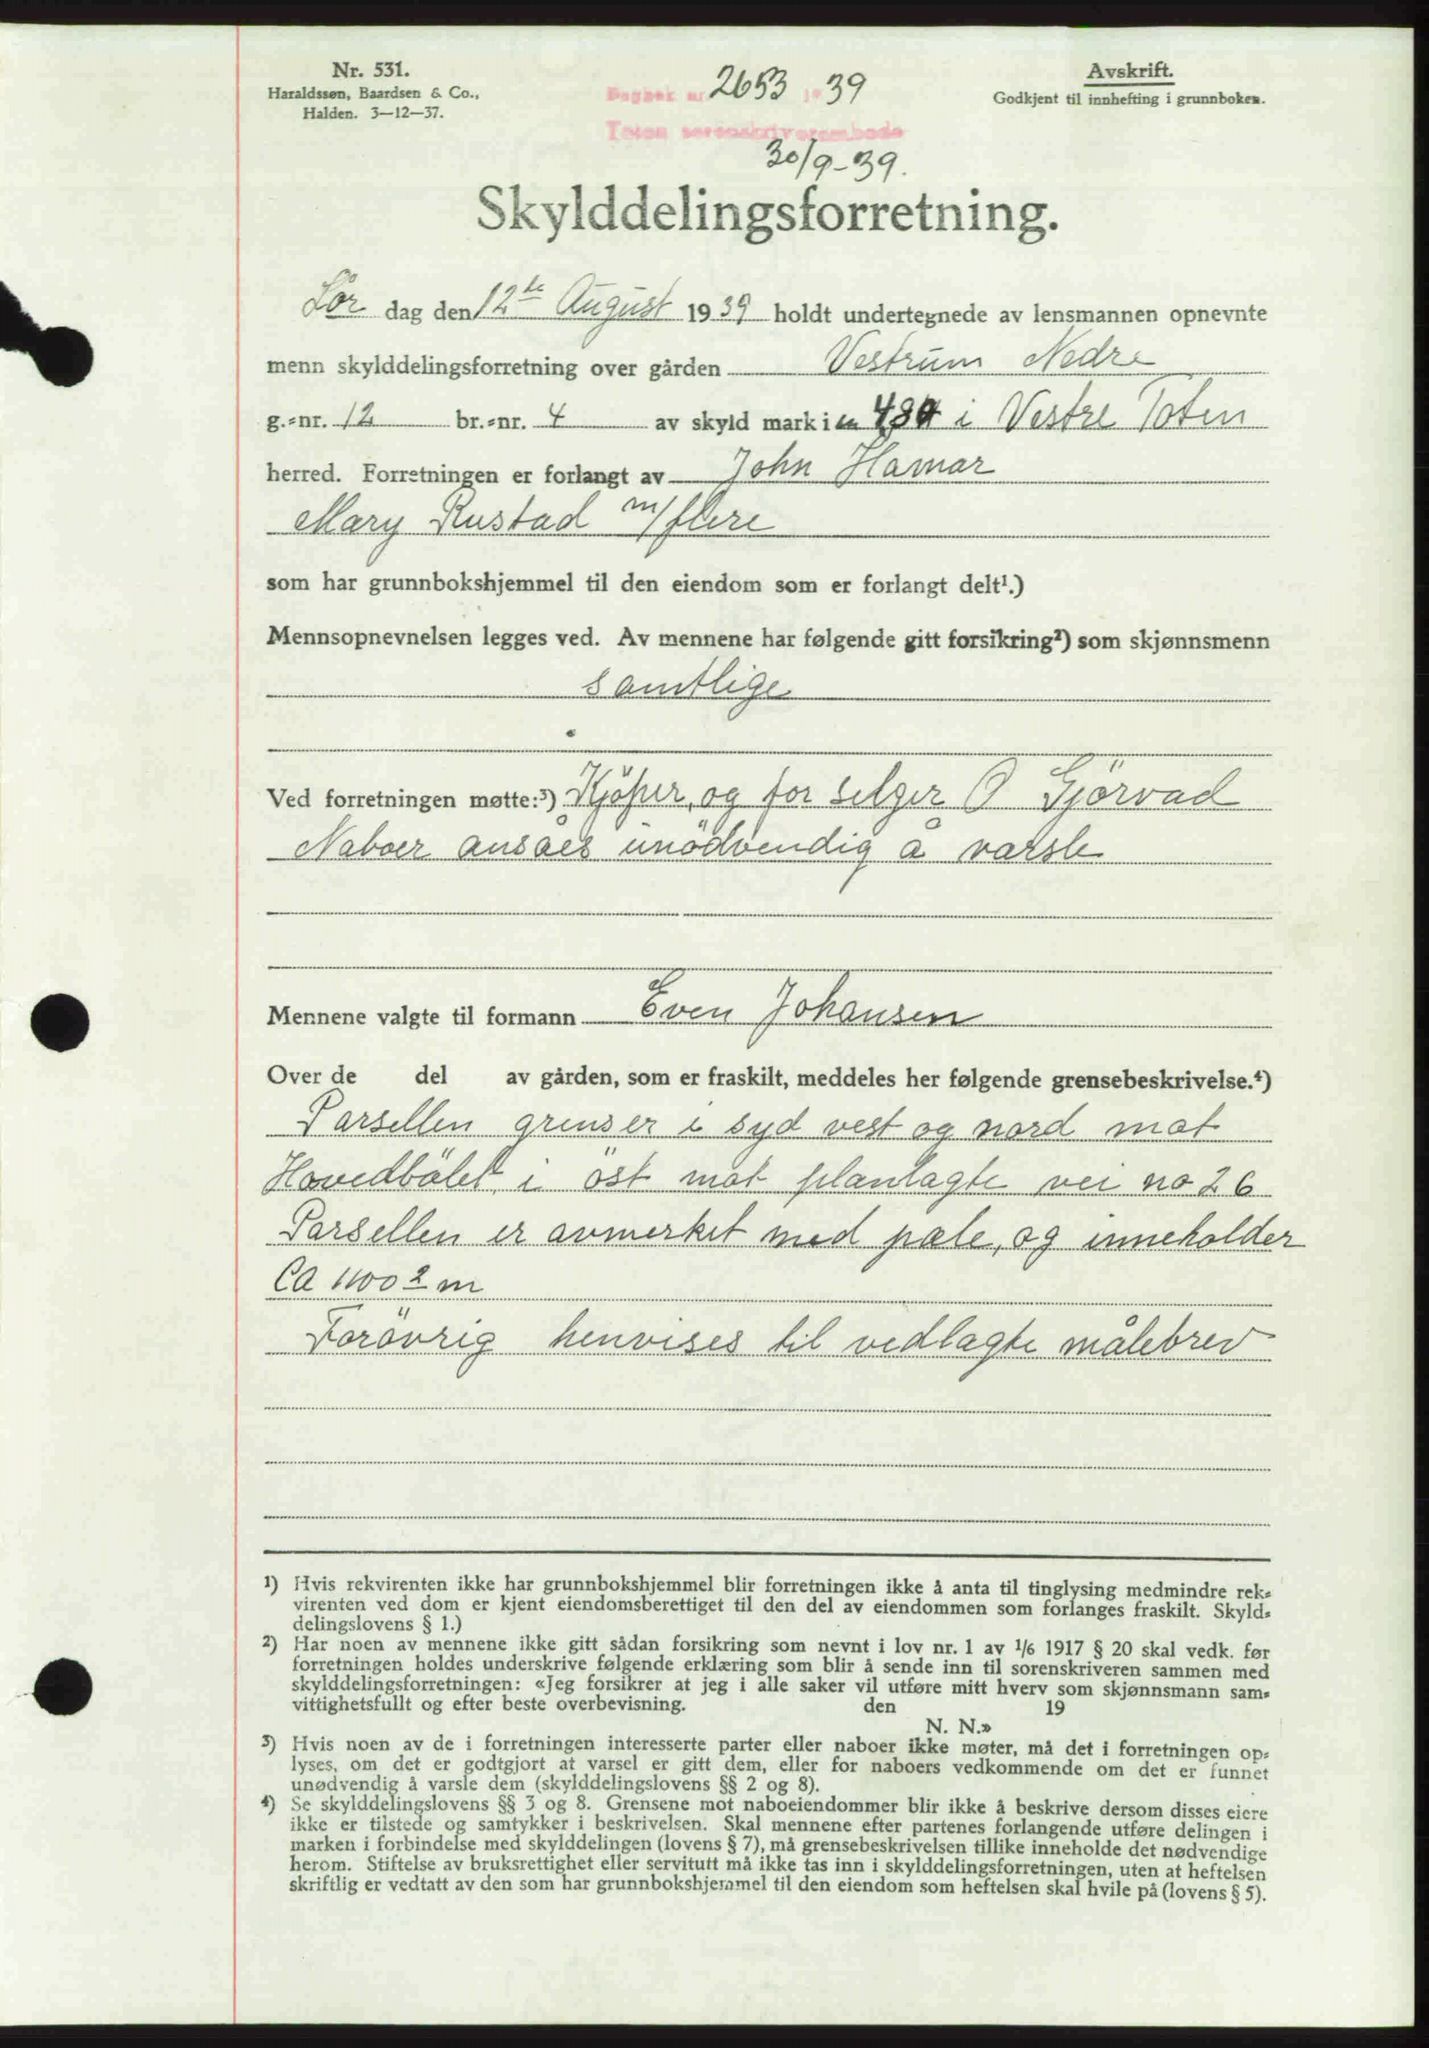 Nr. 531.
Haraldssøn, Baardsen & Co.,
Halden. 3—12—37.
Dagbok nr. 2653 19 39
Toten sorenskriverembede
30/9-39.
Avskrift.
Godkjent til innhefting i grunnboken.
Skylddelingsforretning.
Lør dag den 12te August 1939 holdt undertegnede av lensmannen opnevnte
menn skylddelingsforretning over gården Vestrum Nedre
g.=nr. 12 br.=nr. 4 av skyld mark i Vestre Toten
herred. Forretningen er forlangt av John Hamar
Mary Rustad m/flere
som har grunnbokshjemmel til den eiendom som er forlangt delt¹.)
Mennsopnevnelsen legges ved. Av mennene har følgende gitt forsikring²) som skjønnsmenn
samtlige
Ved forretningen møtte:³) Kjöper, og for selger O Gjörvad
Naboer ansåes unödvendig å varsle
Mennene valgte til formann Even Johansen
Over de del av gården, som er fraskilt, meddeles her følgende grensebeskrivelse.⁴)
Parsellen grenser i syd vest og nord mot
Hovedbölet, i öst mot planlagte vei no 26
Parsellen er avmerket med pæle, og inneholder
Ca 1100 2 m
Forövrig henvises til vedlagte målebrev
1) Hvis rekvirenten ikke har grunnbokshjemmel blir forretningen ikke å anta til tinglysing medmindre rek=
virenten ved dom er kjent eiendomsberettiget til den del av eiendommen som forlanges fraskilt. Skyld=
delingslovens § 1.)
2) Har noen av mennene ikke gitt sådan forsikring som nevnt i lov nr. 1 av 1/6 1917 § 20 skal vedk. før
forretningen holdes underskrive følgende erklæring som blir å sende inn til sorenskriveren sammen med
skylddelingsforretningen: «Jeg forsikrer at jeg i alle saker vil utføre mitt hverv som skjønnsmann sam=
vittighetsfullt og efter beste overbevisning. den 19
N. N.»
3) Hvis noen av de i forretningen interesserte parter eller naboer ikke møter, må det i forretningen op=
lyses, om det er godtgjort at varsel er gitt dem, eller for naboers vedkommende om det er funnet
unødvendig å varsle dem (skylddelingslovens §§ 2 og 8).
4) Se skylddelingslovens §§ 3 og 8. Grensene mot naboeiendommer blir ikke å beskrive dersom disses eiere
ikke er tilstede og samtykker i beskrivelsen. Skal mennene efter partenes forlangende utføre delingen i
marken i forbindelse med skylddelingen (lovens § 7), må grensebeskrivelsen tillike inneholde det nødvendige
herom. Stiftelse av bruksrettighet eller servitutt må ikke tas inn i skylddelingsforretningen, uten at heftelsen
skriftlig er vedtatt av den som har grunnbokshjemmel til den eiendom som heftelsen skal hvile på (lovens § 5).